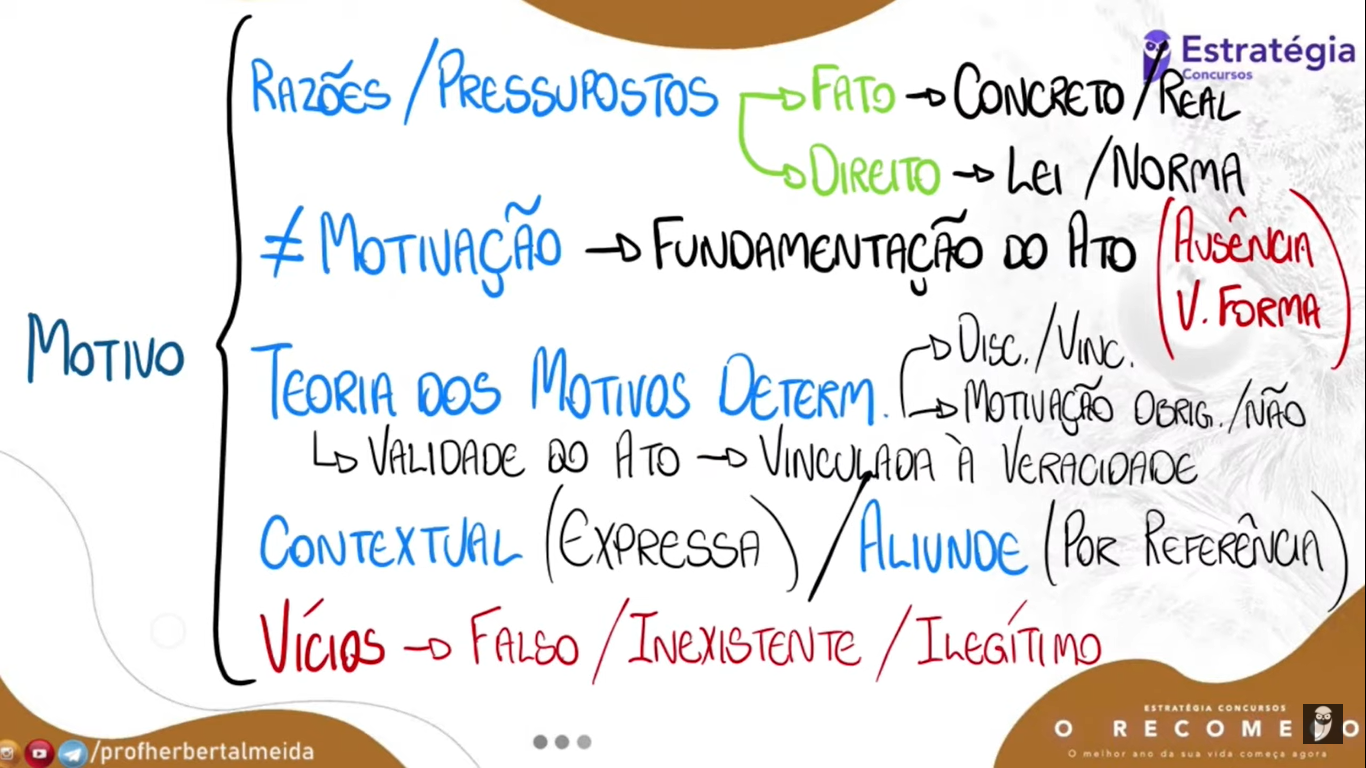 Estratégia
Concursos
RAZÕES / PRESSUPOSTOS → FATO → CONCRETO / REAL
→ DIREITO → LEI / NORMA
≠ MOTIVAÇÃO → FUNDAMENTAÇÃO DO ATO (AUSÊNCIA
V. FORMA)
MOTIVO
TEORIA DOS MOTIVOS DETERM. → DISC. / VINC.
→ MOTIVAÇÃO OBRIG. / NÃO
↳ VALIDADE DO ATO → VINCULADA À VERACIDADE
CONTEXTUAL (EXPRESSA) / ALIUNDE (POR REFERÊNCIA)
VÍCIOS → FALSO / INEXISTENTE / ILEGÍTIMO
/profherbertalmeida
ESTRATÉGIA CONCURSOS
O RECOMEÇO
O melhor ano da sua vida começa agora